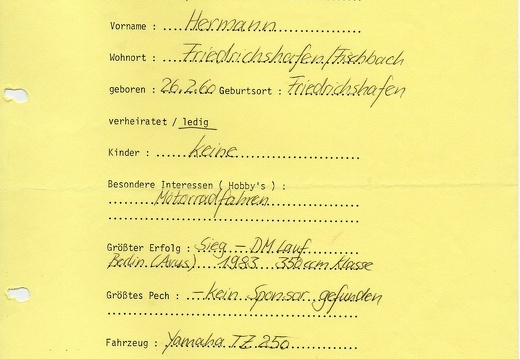 Vorname : Hermann
Wohnort : Friedrichshafen/Fischbach
geboren : 26.2.60 Geburtsort : Friedrichshafen
verheiratet / ledig
Kinder : keine
Besondere Interessen ( Hobby's ) :
Motorradfahren
Größter Erfolg : Sieg – DM Lauf
Berlin (Avus) 1983 350ccm Klasse
Größtes Pech : – kein Sponsor gefunden
Fahrzeug : Yamaha TZ 250